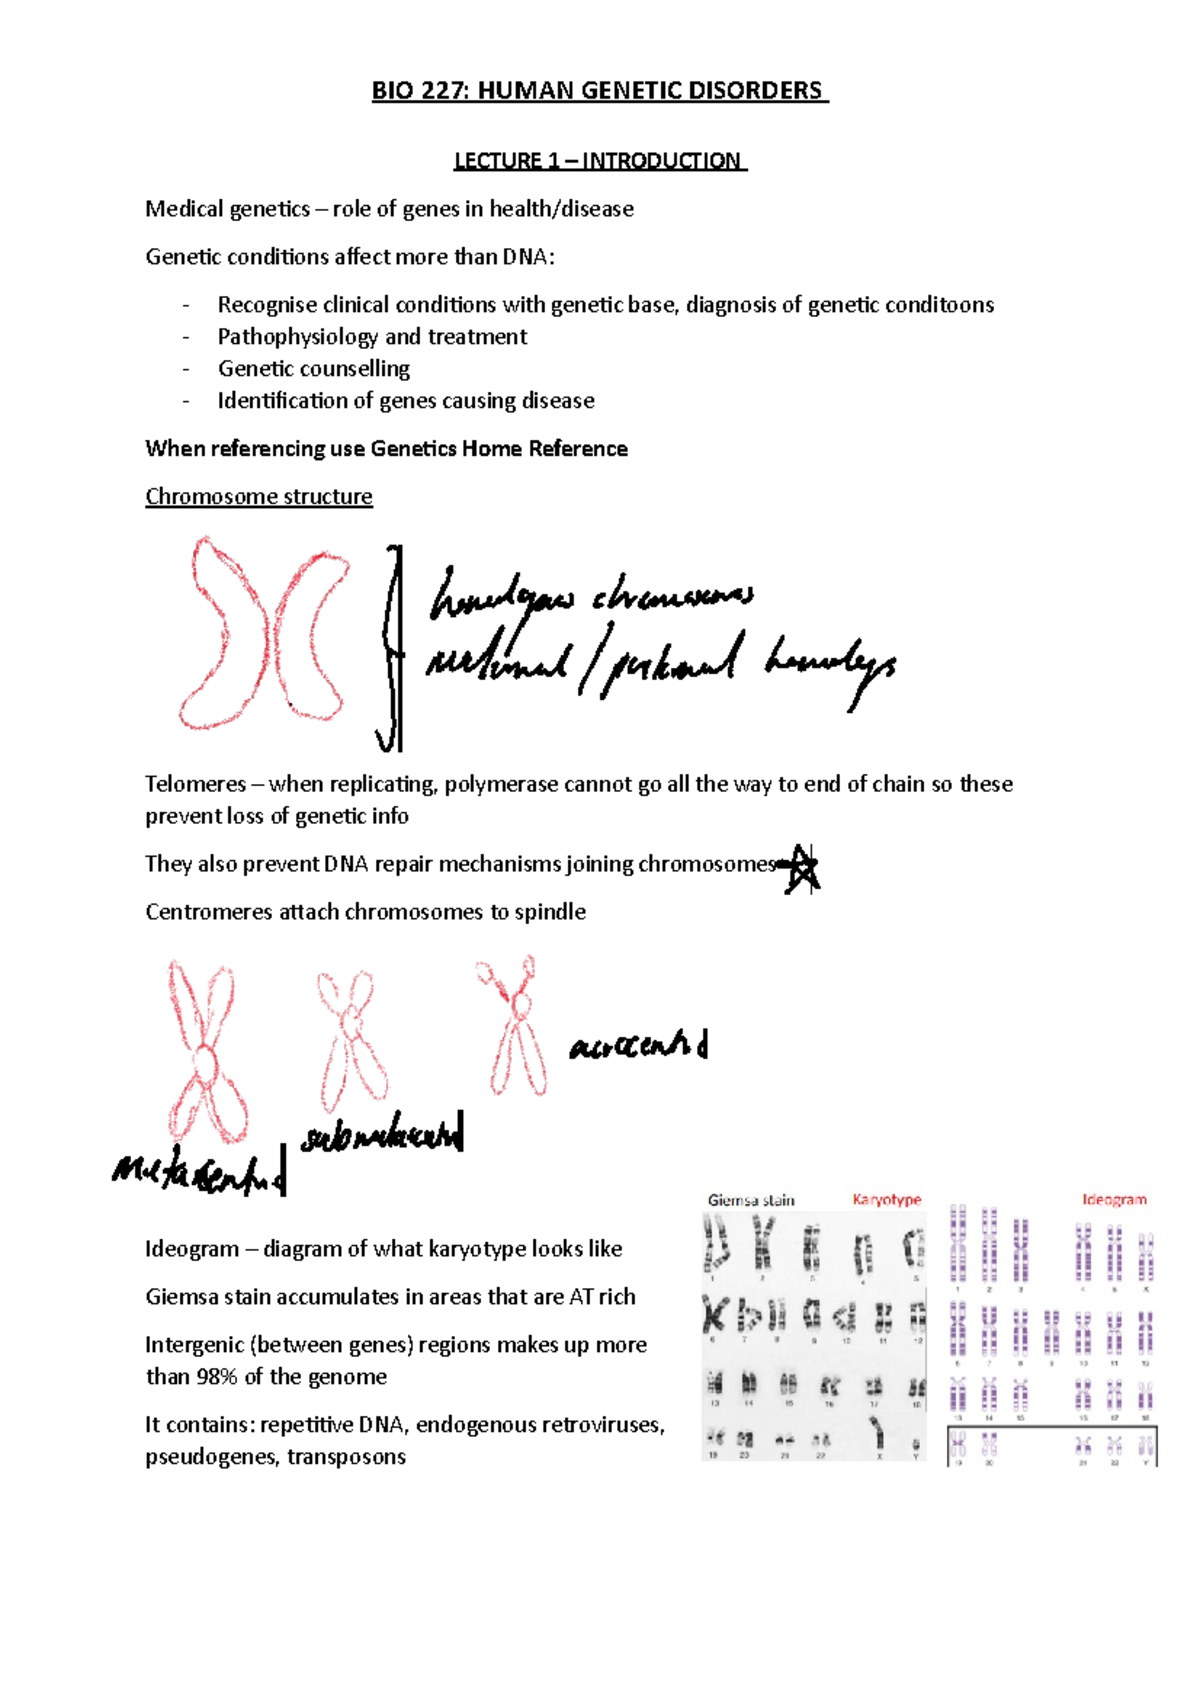 BIO 227: HUMAN GENETIC DISORDERS
LECTURE 1 – INTRODUCTION
Medical genetics – role of genes in health/disease
Genetic conditions affect more than DNA:
- Recognise clinical conditions with genetic base, diagnosis of genetic conditoons
- Pathophysiology and treatment
- Genetic counselling
- Identification of genes causing disease
When referencing use Genetics Home Reference
Chromosome structure
homologous chromosomes
maternal / paternal homologs
Telomeres – when replicating, polymerase cannot go all the way to end of chain so these
prevent loss of genetic info
They also prevent DNA repair mechanisms joining chromosomes
Centromeres attach chromosomes to spindle
acrocentric
submetacentric
metacentric
Giemsa stain Karyotype Ideogram
Ideogram – diagram of what karyotype looks like
Giemsa stain accumulates in areas that are AT rich
Intergenic (between genes) regions makes up more
than 98% of the genome
It contains: repetitive DNA, endogenous retroviruses,
pseudogenes, transposons
1 2 3 4 5
6 7 8 9 10 11 12
13 14 15 16 17 18
19 20 21 22 X Y
1 2 3 4 5 X
6 7 8 9 10 11 12
13 14 15 16 17 18
19 20 21 22 Y